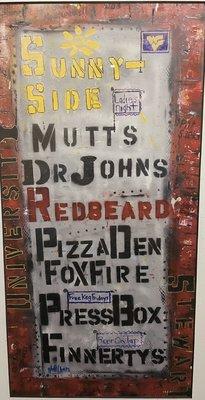 SUNNY-
SIDE
Ladies
night
MUTTS
DRJOHNS
REDBEARD
PIZZADEN
FOXFIRE
Free Keg Fridays
PRESSBOX
FINNERTYS
UNIVERSITY
STEWART